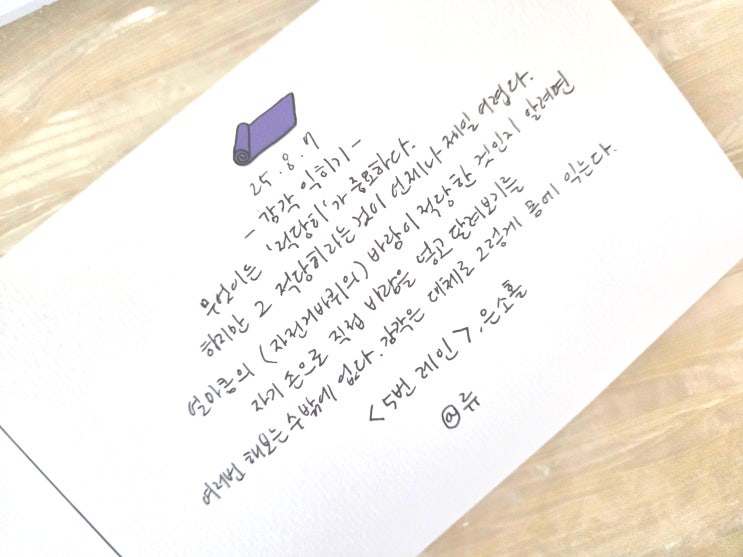 25.8.7
- 감각 익히기 -
무엇이든 '적당히'가 중요하다.
하지만 그 적당히라는 것이 언제나 제일 어렵다.
얼마큼의 (자전거바퀴의) 바람이 적당한 것인지 알려면
자기 손으로 직접 바람을 넣고 달려보기를
여러번 해보는 수밖에 없다. 감각은 대체로 그렇게 몸에 익는다.
<5번 레인>. 은소홀
@류